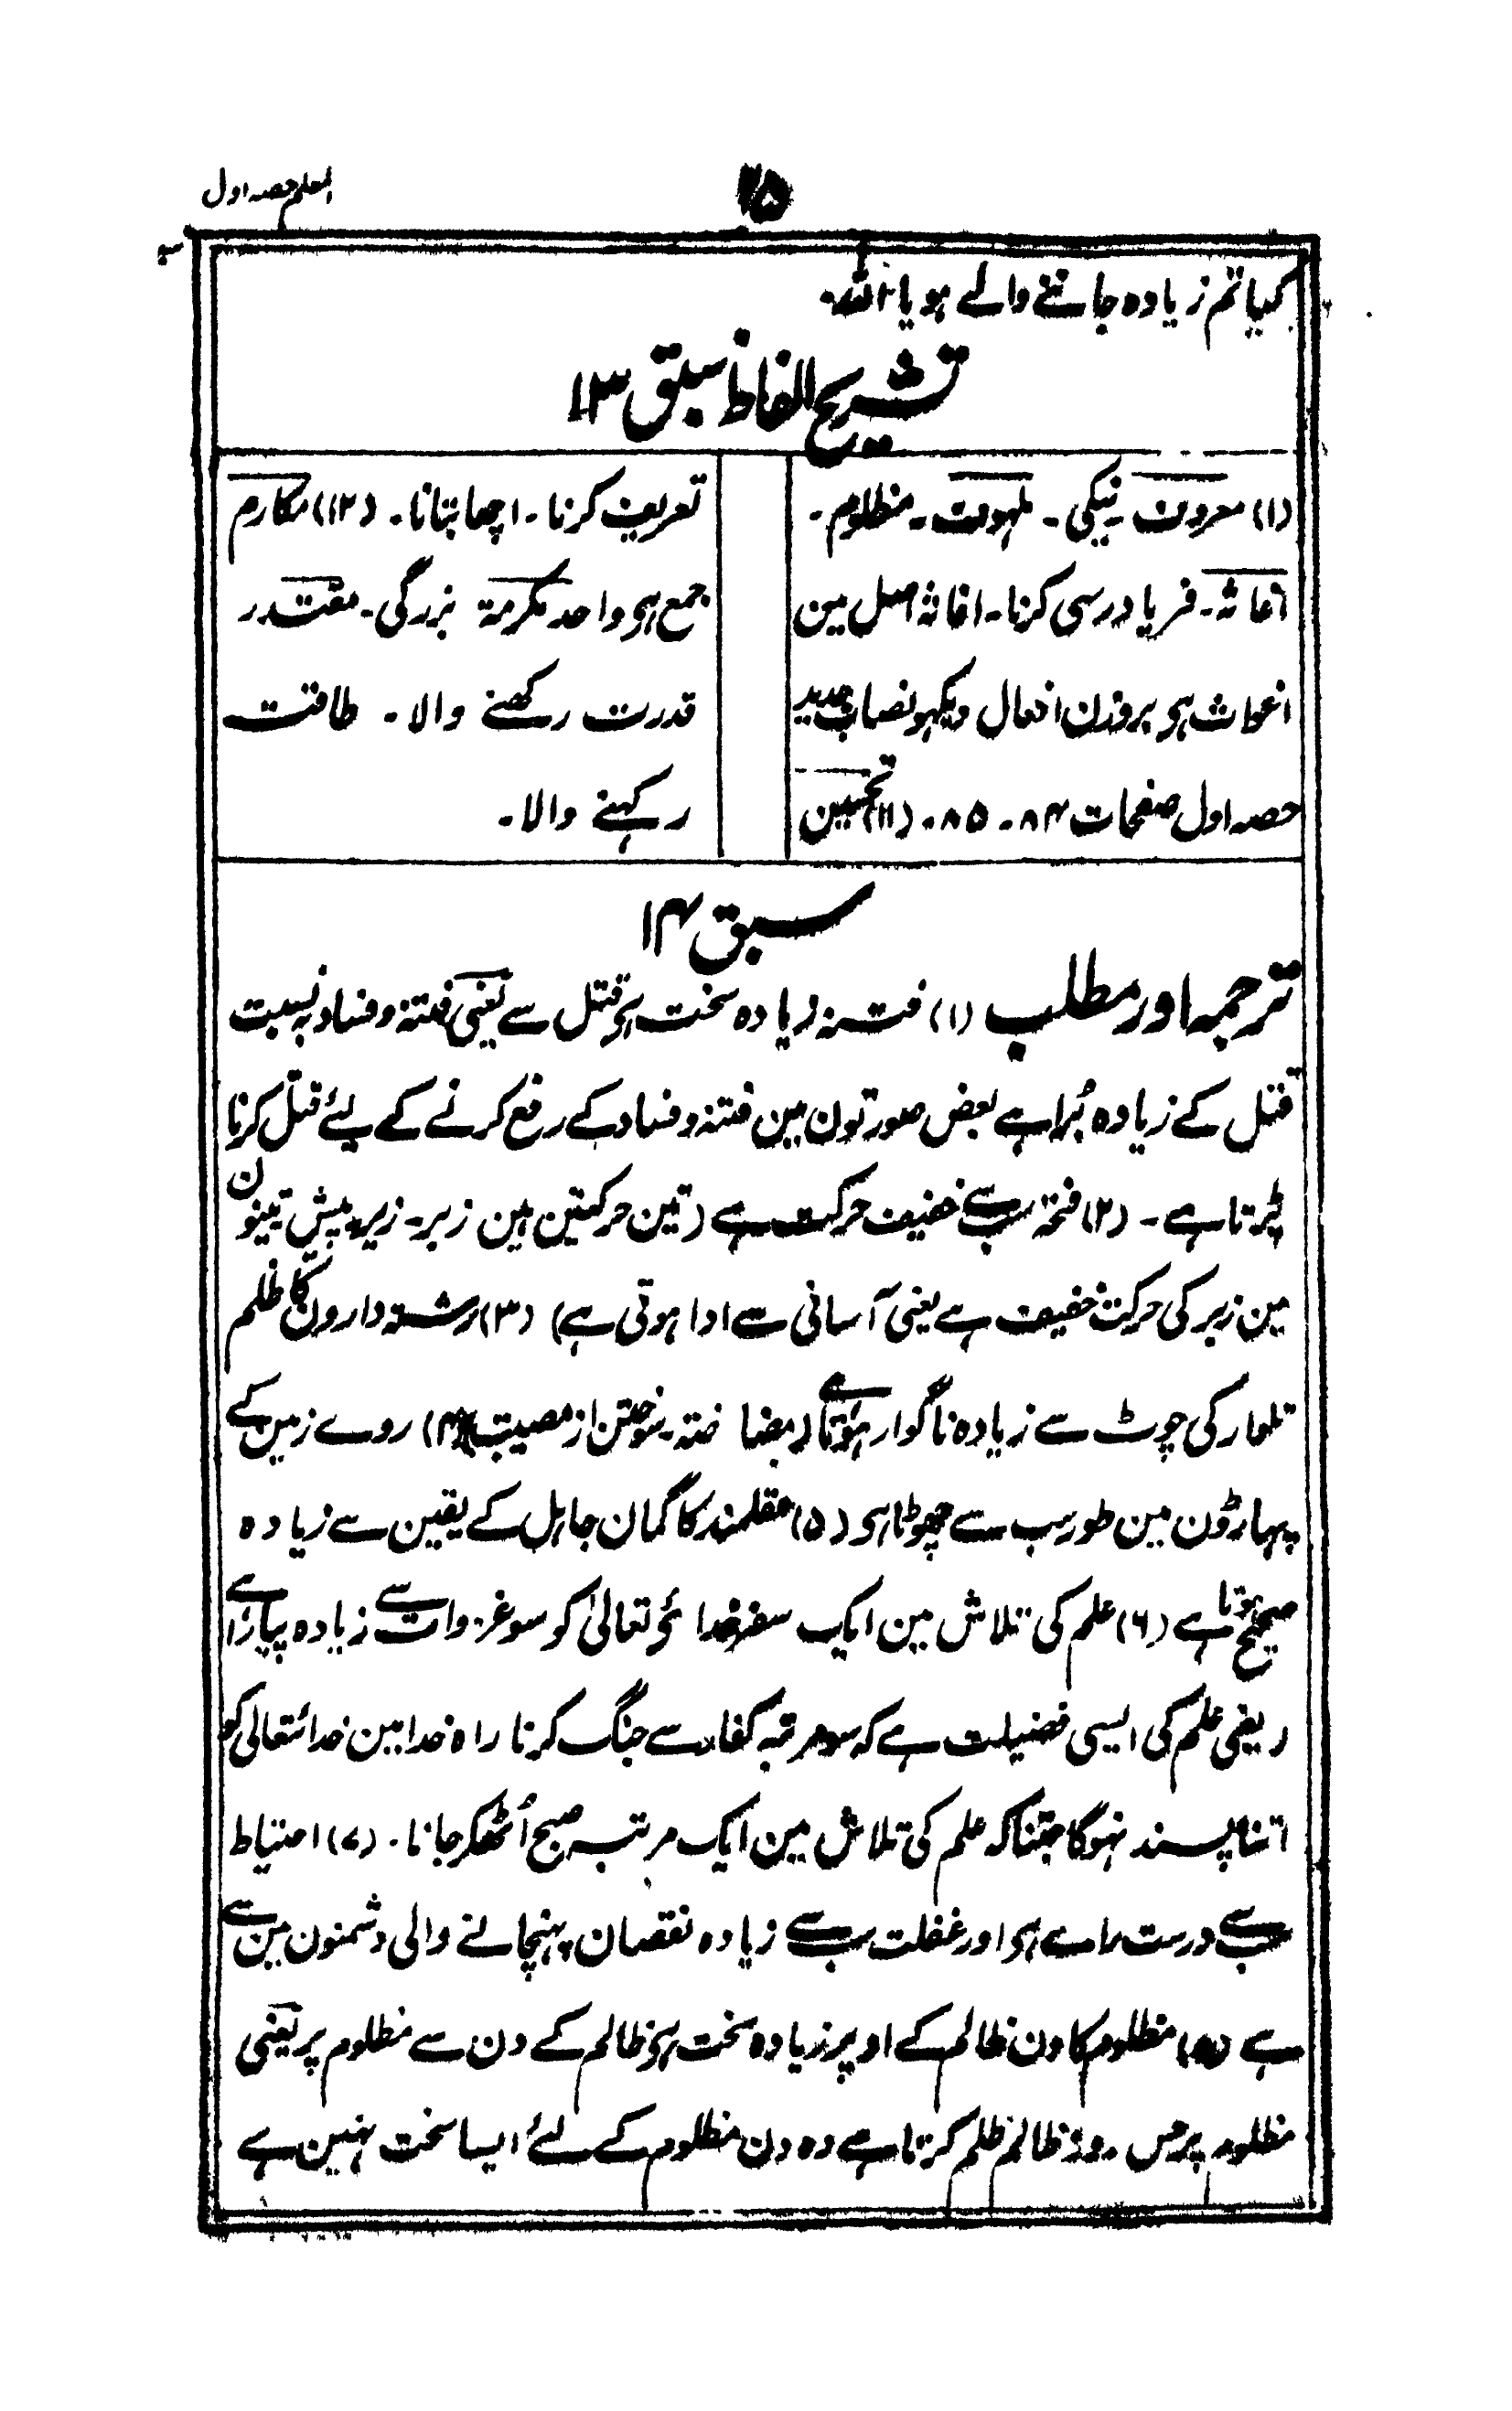 المعلم حصہ اول
۲۵
کیا تم زیادہ جاننے والے ہو یا اللہ۔
تشریح الفاظ سبق ۱۳
(۱) معروف۔ نیکی۔ ملہوف۔ مظلوم۔
اغاثہ۔ فریاد رسی کرنا۔ اغاثہ اصل مین
اغواث ہی بروزن افعال دیکہو نصاب جدید
حصہ اول صفحات ۸۴۔ ۸۵۔ (۱۱) تحسین
تعریف کرنا۔ اچھا بتانا۔ (۱۲) مکارم
جمع ہی واحد مکرمۃ بزرگی۔ مقتدر
قدرت رکھنے والا۔ طاقت
رکہنے والا۔
سبق ۱۴
ترجمہ اور مطلب (۱) فتنہ زیادہ سخت ہی قتل سے یعنی فتنہ و فساد بہ نسبت
قتل کے زیادہ بُرا ہے بعض صورتون مین فتنہ و فساد کے رفع کرنے کے لیٔے قتل کرنا
پڑتا ہے۔ (۲) فتحہ سب سے خفیف حرکت ہے (تین حرکتین ہین زبر۔ زیر۔ پیش تینون
مین زبر کی حرکت خفیف ہے یعنی آسانی سے ادا ہوتی ہے) (۳) رشتہ دارون کا ظلم
تلوار کی چوٹ سے زیادہ ناگوار ہوتا ہے (مضاضتہ۔ سوختن از مصیبت) (۴) روے زمین کے
پہاڑون مین طور سب سے چھوٹا ہی (۵) عقلمند کا گمان جاہل کے یقین سے زیادہ
صحیح ہوتا ہے (۶) علم کی تلاش مین ایک سفر خدائے تعالیٰ کو سو غزوات سے زیادہ پیارا ہے
(یعنی علم کی ایسی فضیلت ہے کہ سو مرتبہ کفار سے جنگ کرنا راہ خدا مین خدائتعالی کو
اتنا پسند نہوگا جتنا کہ علم کی تلاش مین ایک مرتبہ صبح اُٹھکر جانا۔ (۷) احتیاط
سب سے درست راے ہی اور غفلت سب سے زیادہ نقصان پہنچانے والی دشمنون مین سے
ہے (۸) مظلوم کا دن ظالم کے اوپر زیادہ سخت ہی ظالم کے دن سے مظلوم پر یعنی
مظلوم پر جس روز ظالم ظلم کرتا ہے وہ دن مظلوم کے لئے ایسا سخت نہین ہے